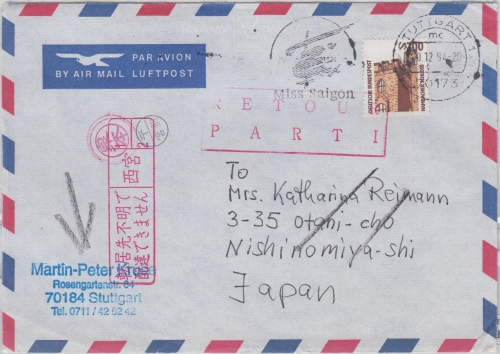 PAR AVION
BY AIR MAIL LUFTPOST
Miss Saigon
STUTTGART 1
mc
70173
DEUTSCHE BUNDESPOST
RETOUR
PARTI
西宮
転居先不明で
配達できません
To
Mrs. Katharina Reimann
3-35 Otani-cho
Nishinomiya-shi
Japan
Martin-Peter Kruse
Rosengartenstr. 64
70184 Stuttgart
Tel. 0711/42 52 42